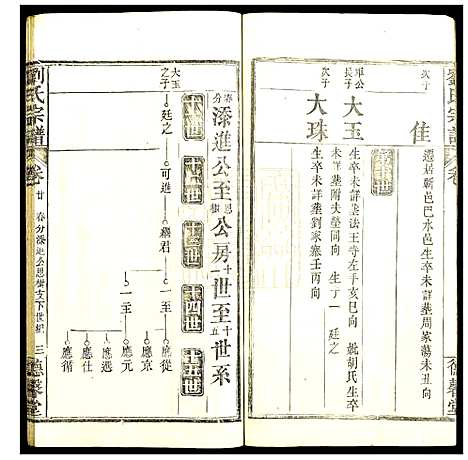 劉氏宗譜
卷
德馨堂
次子
佳
遷居蘄邑巴水邑生卒未詳葬周家蕩未丑向
單公長子
大玉
生卒未詳葬法王寺左手亥巳向 娶胡氏生卒
未詳葬附夫塋同向 生丁一 廷之
次子
大珠
生卒未詳葬劉家寨壬丙向
春分添進公至思樹公房十一世至十五世系
十一世
十二世
十三世
十四世
十五世
大玉之子
廷之
可進
一至
一至
應從
應京
應元
應遠
應仕
應循
劉氏宗譜
卷
廿 春分添進公思樹支下世系 三
德馨堂